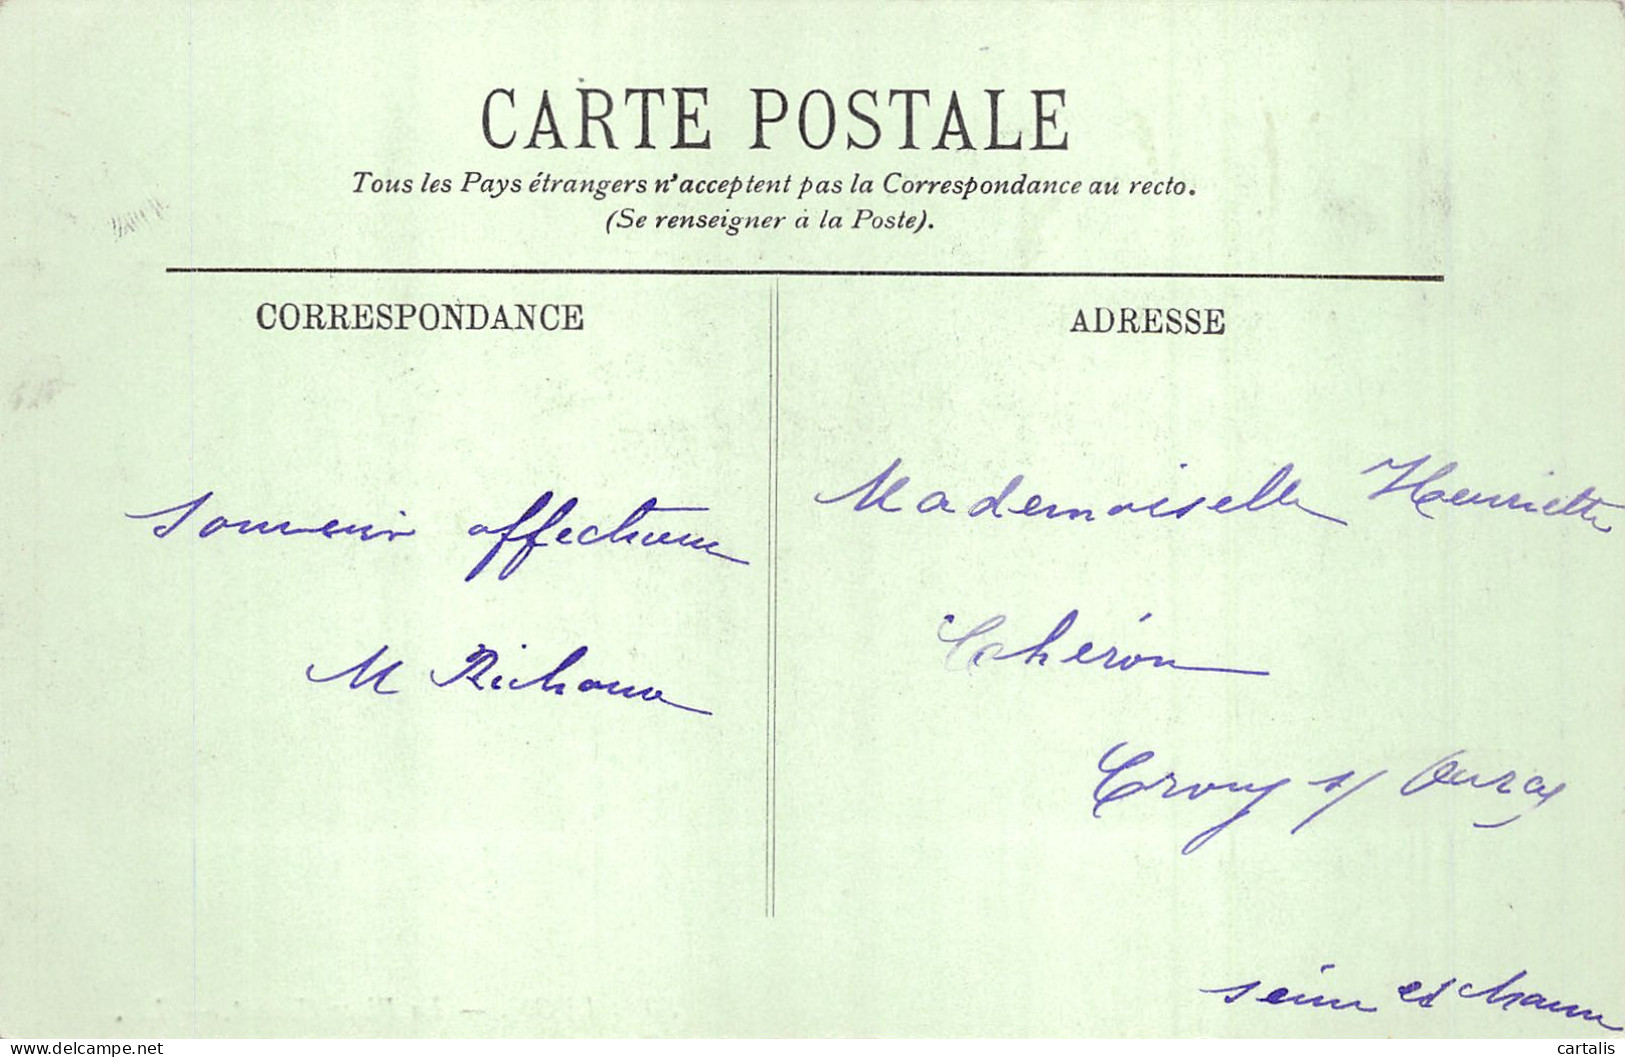 CARTE POSTALE
Tous les Pays étrangers n'acceptent pas la Correspondance au recto.
(Se renseigner à la Poste).
CORRESPONDANCE
ADRESSE
Souvenir affectueux
M
Mademoiselle Henriette
Chéron
Crouy s/ Ourcq
Seine et Marne
delcampe.net
cartalis